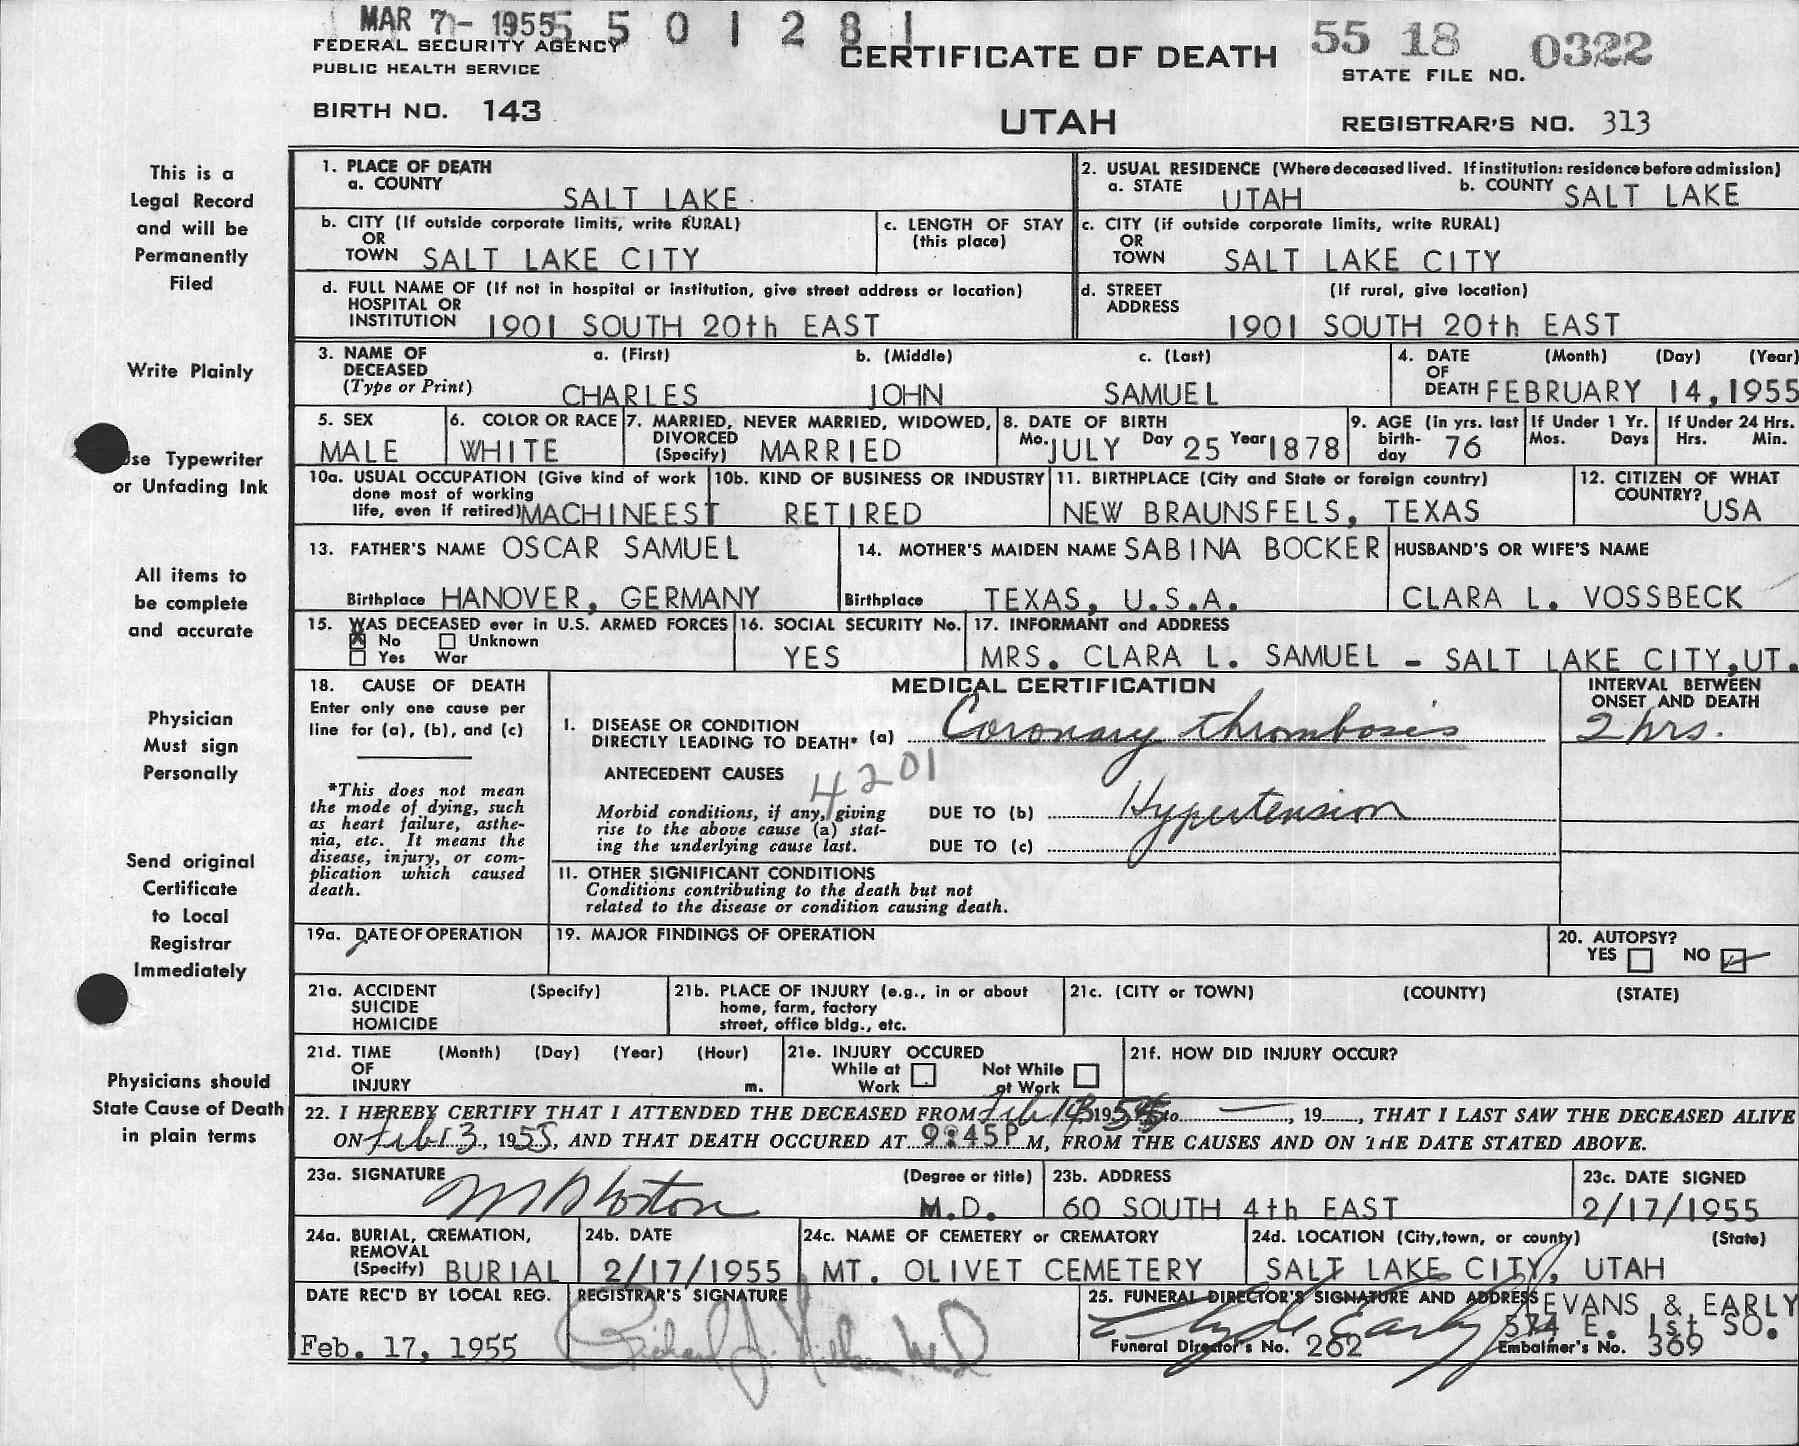 MAR 7- 1955 5 5 0 1 2 8 1
FEDERAL SECURITY AGENCY
PUBLIC HEALTH SERVICE
CERTIFICATE OF DEATH
55 18 0322
STATE FILE NO.
BIRTH NO. 143
UTAH
REGISTRAR'S NO. 313
This is a
Legal Record
and will be
Permanently
Filed
Write Plainly
Use Typewriter
or Unfading Ink
All items to
be complete
and accurate
Physician
Must sign
Personally
Send original
Certificate
to Local
Registrar
Immediately
Physicians should
State Cause of Death
in plain terms
1. PLACE OF DEATH
a. COUNTY
SALT LAKE
2. USUAL RESIDENCE (Where deceased lived. If institution: residence before admission)
a. STATE UTAH b. COUNTY SALT LAKE
b. CITY (If outside corporate limits, write RURAL)
OR
TOWN SALT LAKE CITY
c. LENGTH OF STAY
(this place)
c. CITY (if outside corporate limits, write RURAL)
OR
TOWN SALT LAKE CITY
d. FULL NAME OF (If not in hospital or institution, give street address or location)
HOSPITAL OR
INSTITUTION 1901 SOUTH 20th EAST
d. STREET (If rural, give location)
ADDRESS
1901 SOUTH 20th EAST
3. NAME OF a. (First) b. (Middle) c. (Last)
DECEASED
(Type or Print) CHARLES JOHN SAMUEL
4. DATE (Month) (Day) (Year)
OF
DEATH FEBRUARY 14, 1955
5. SEX
MALE
6. COLOR OR RACE
WHITE
7. MARRIED, NEVER MARRIED, WIDOWED,
DIVORCED
(Specify) MARRIED
8. DATE OF BIRTH
Mo. JULY Day 25 Year 1878
9. AGE (in yrs. last
birth-
day 76
If Under 1 Yr.
Mos. Days
If Under 24 Hrs.
Hrs. Min.
10a. USUAL OCCUPATION (Give kind of work
done most of working
life, even if retired) MACHINEEST
10b. KIND OF BUSINESS OR INDUSTRY
RETIRED
11. BIRTHPLACE (City and State or foreign country)
NEW BRAUNSFELS, TEXAS
12. CITIZEN OF WHAT
COUNTRY?
USA
13. FATHER'S NAME OSCAR SAMUEL
Birthplace HANOVER, GERMANY
14. MOTHER'S MAIDEN NAME SABINA BOCKER
Birthplace TEXAS, U.S.A.
HUSBAND'S OR WIFE'S NAME
CLARA L. VOSSBECK
15. WAS DECEASED ever in U.S. ARMED FORCES
X No Unknown
Yes War
16. SOCIAL SECURITY No.
YES
17. INFORMANT and ADDRESS
MRS. CLARA L. SAMUEL - SALT LAKE CITY, UT.
18. CAUSE OF DEATH
Enter only one cause per
line for (a), (b), and (c)
*This does not mean
the mode of dying, such
as heart failure, asthe-
nia, etc. It means the
disease, injury, or com-
plication which caused
death.
MEDICAL CERTIFICATION
INTERVAL BETWEEN
ONSET AND DEATH
I. DISEASE OR CONDITION
DIRECTLY LEADING TO DEATH* (a) Coronary thrombosis
2 hrs.
ANTECEDENT CAUSES
4201
Morbid conditions, if any, giving
rise to the above cause (a) stat-
ing the underlying cause last.
DUE TO (b) Hypertension
DUE TO (c)
II. OTHER SIGNIFICANT CONDITIONS
Conditions contributing to the death but not
related to the disease or condition causing death.
19a. DATE OF OPERATION
19. MAJOR FINDINGS OF OPERATION
20. AUTOPSY?
YES NO
21a. ACCIDENT (Specify)
SUICIDE
HOMICIDE
21b. PLACE OF INJURY (e.g., in or about
home, farm, factory
street, office bldg., etc.
21c. (CITY or TOWN) (COUNTY) (STATE)
21d. TIME (Month) (Day) (Year) (Hour)
OF
INJURY m.
21e. INJURY OCCURED
While at Not While
Work at Work
21f. HOW DID INJURY OCCUR?
22. I HEREBY CERTIFY THAT I ATTENDED THE DECEASED FROM Feb 19 to , 19 , THAT I LAST SAW THE DECEASED ALIVE
ON Feb 13, 1955, AND THAT DEATH OCCURED AT 9:45P M, FROM THE CAUSES AND ON THE DATE STATED ABOVE.
23a. SIGNATURE (Degree or title)
M.D.
23b. ADDRESS
60 SOUTH 4th EAST
23c. DATE SIGNED
2/17/1955
24a. BURIAL, CREMATION,
REMOVAL
(Specify) BURIAL
24b. DATE
2/17/1955
24c. NAME OF CEMETERY or CREMATORY
MT. OLIVET CEMETERY
24d. LOCATION (City, town, or county) (State)
SALT LAKE CITY, UTAH
DATE REC'D BY LOCAL REG.
Feb. 17, 1955
REGISTRAR'S SIGNATURE
25. FUNERAL DIRECTOR'S SIGNATURE AND ADDRESS
Clyde Early
EVANS & EARLY
574 E. 1st SO.
Funeral Director's No. 262
Embalmer's No. 369